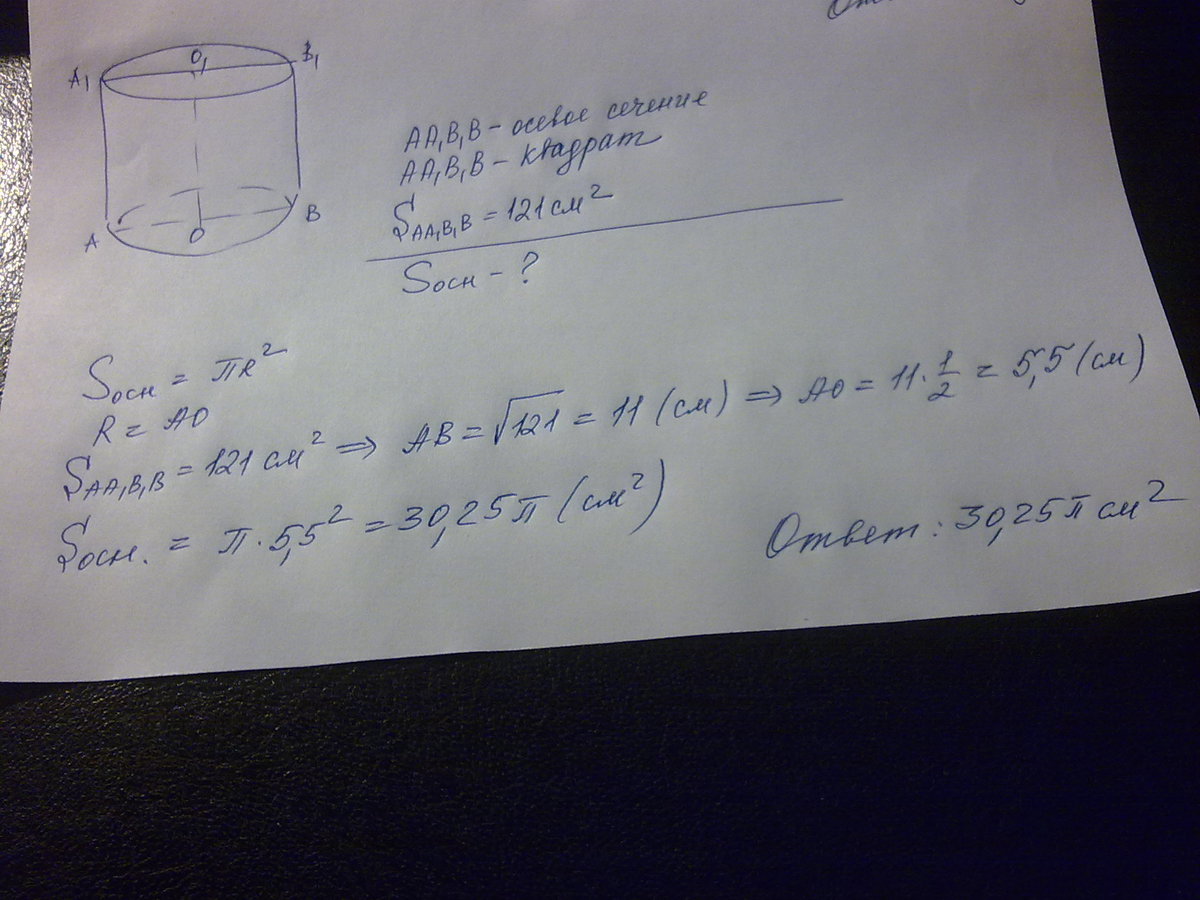 A₁ O₁ B₁
A O B
AA₁B₁B – осевое сечение
AA₁B₁B – квадрат
S AA₁B₁B = 121 см²
Sосн – ?
Sосн = πR²
R = AO
S AA₁B₁B = 121 см² ⇒ AB = √121 = 11 (см) ⇒ AO = 11 · 1/2 = 5,5 (см)
Sосн. = π · 5,5² = 30,25π (см²)
Ответ: 30,25π см²